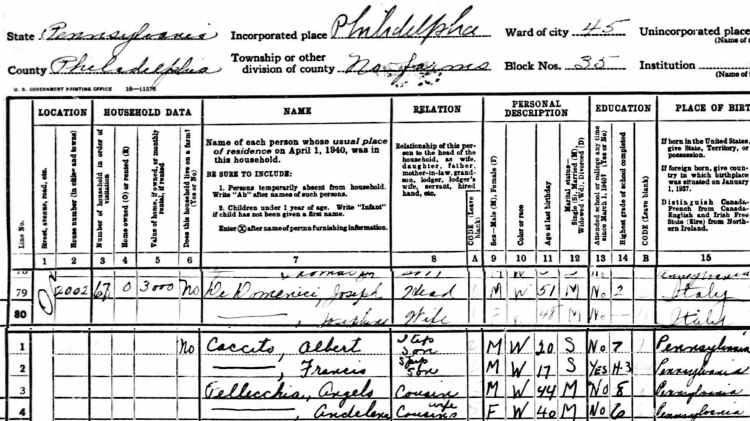 State Pennsylvania Incorporated place Philadelphia Ward of city 45 Unincorporated place
(Name of
County Philadelphia Township or other division of county No farms Block Nos. 35 Institution
(Name of
U. S. GOVERNMENT PRINTING OFFICE 16—11576
LOCATION HOUSEHOLD DATA NAME RELATION PERSONAL DESCRIPTION EDUCATION PLACE OF BIRT
Line No.
Street, avenue, road, etc.
House number (in cities and towns)
Number of household in order of visitation
Home owned (O) or rented (R)
Value of home, if owned, or monthly rental, if rented
Does this household live on a farm? (Yes or No)
Name of each person whose usual place of residence on April 1, 1940, was in this household.
BE SURE TO INCLUDE:
1. Persons temporarily absent from household. Write "Ab" after names of such persons.
2. Children under 1 year of age. Write "Infant" if child has not been given a first name.
Enter ⓧ after name of person furnishing information.
Relationship of this person to the head of the household, as wife, daughter, father, mother-in-law, grandson, lodger, lodger's wife, servant, hired hand, etc.
CODE (Leave blank)
Sex—Male (M), Female (F)
Color or race
Age at last birthday
Marital status—Single (S), Married (M), Widowed (Wd), Divorced (D)
Attended school or college any time since March 1, 1940? (Yes or No)
Highest grade of school completed
CODE (Leave blank)
If born in the United States, give State, Territory, or possession.
If foreign born, give country in which birthplace was situated on January 1, 1937.
Distinguish Canada-French from Canada-English and Irish Free State (Eire) from Northern Ireland.
1 2 3 4 5 6 7 8 A 9 10 11 12 13 14 B 15
79 2002 67 O 3000 No De Domenici, Joseph Head M W 51 M No 2 Italy
80 ———, Josephine Wife 48 M No Italy
1 No Caccito, Albert Step Son M W 20 S No 7 Pennsylvania
2 ———, Francis Step Son M W 17 S Yes H-3 Pennsylvania
3 Tellecchia, Angelo Cousin M W 44 M No 8 Pennsylvania
4 ———, Cousins wife F W 40 M No 6 Pennsylvania